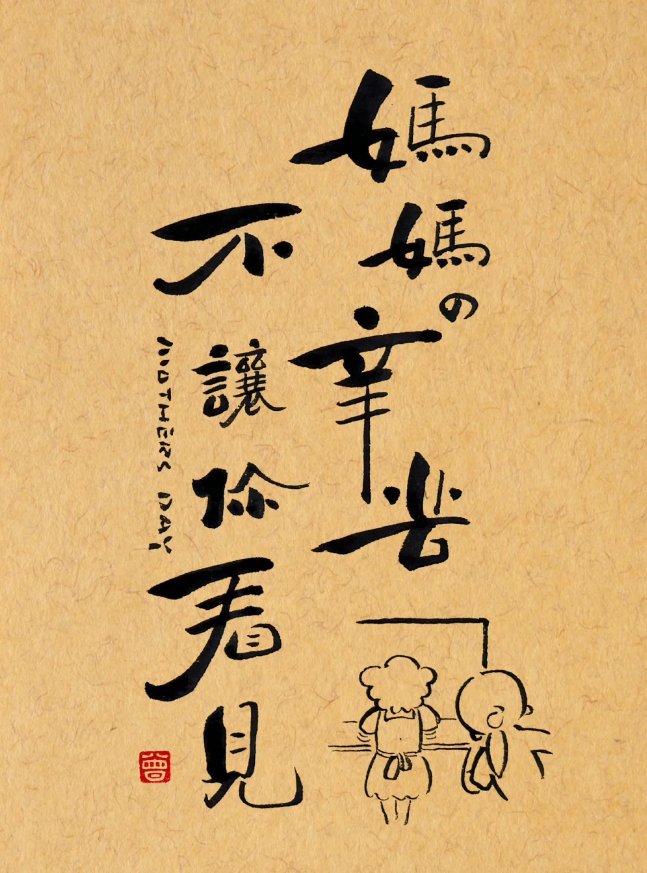 媽媽の辛苦
不讓你看見
MOTHERS DAY
曾